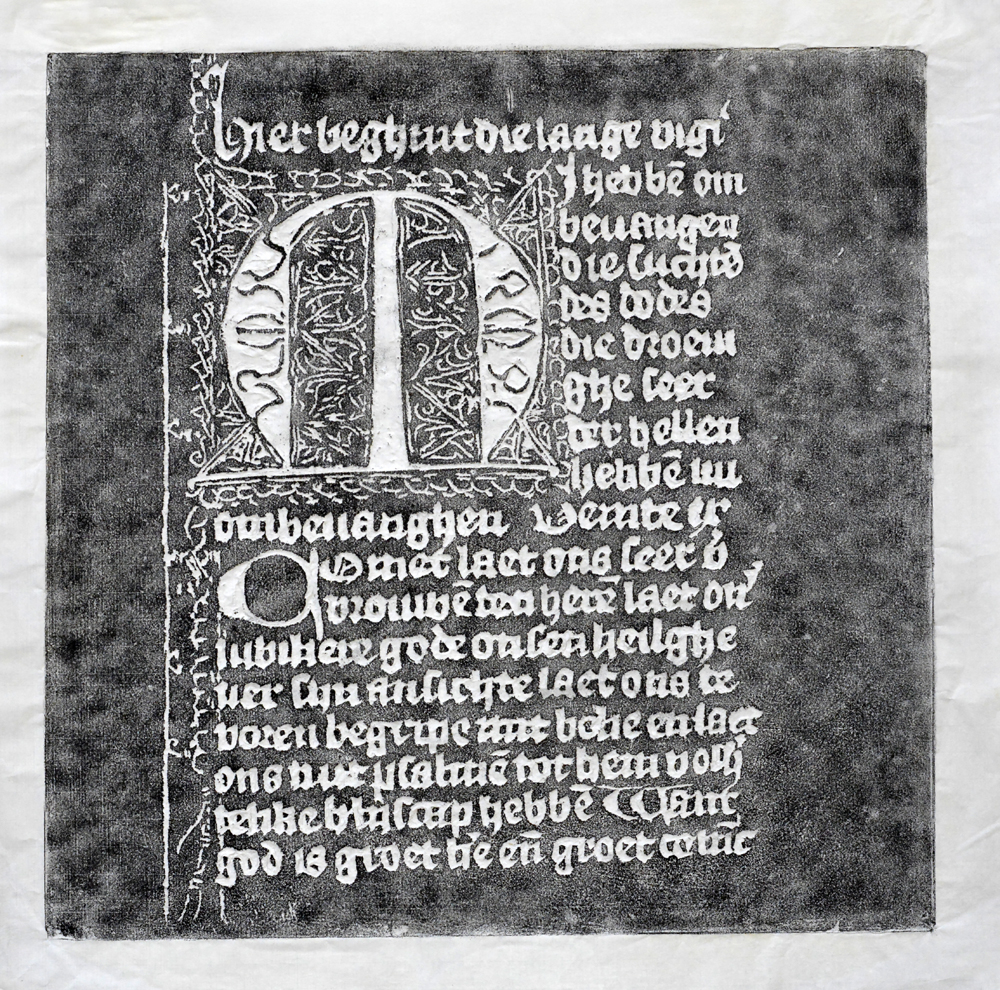 hier beghint die lange vigi
M J hebbē om
beuangen
die suchtē
des dodes
die droeui
ghe seer
der hellen
hebbē mi
ombeuanghen Venite ps
COmet laet ons seer v̄
vrouwē den herē laet on
iubilierē gode onsen heilghe
uer sijn ansichte laet ons te
voren begripē mit bēhe en laet
ons mit psalmē tot hem volli
kelike blijscap hebbē Want
god is groet hē eñ groet coninc